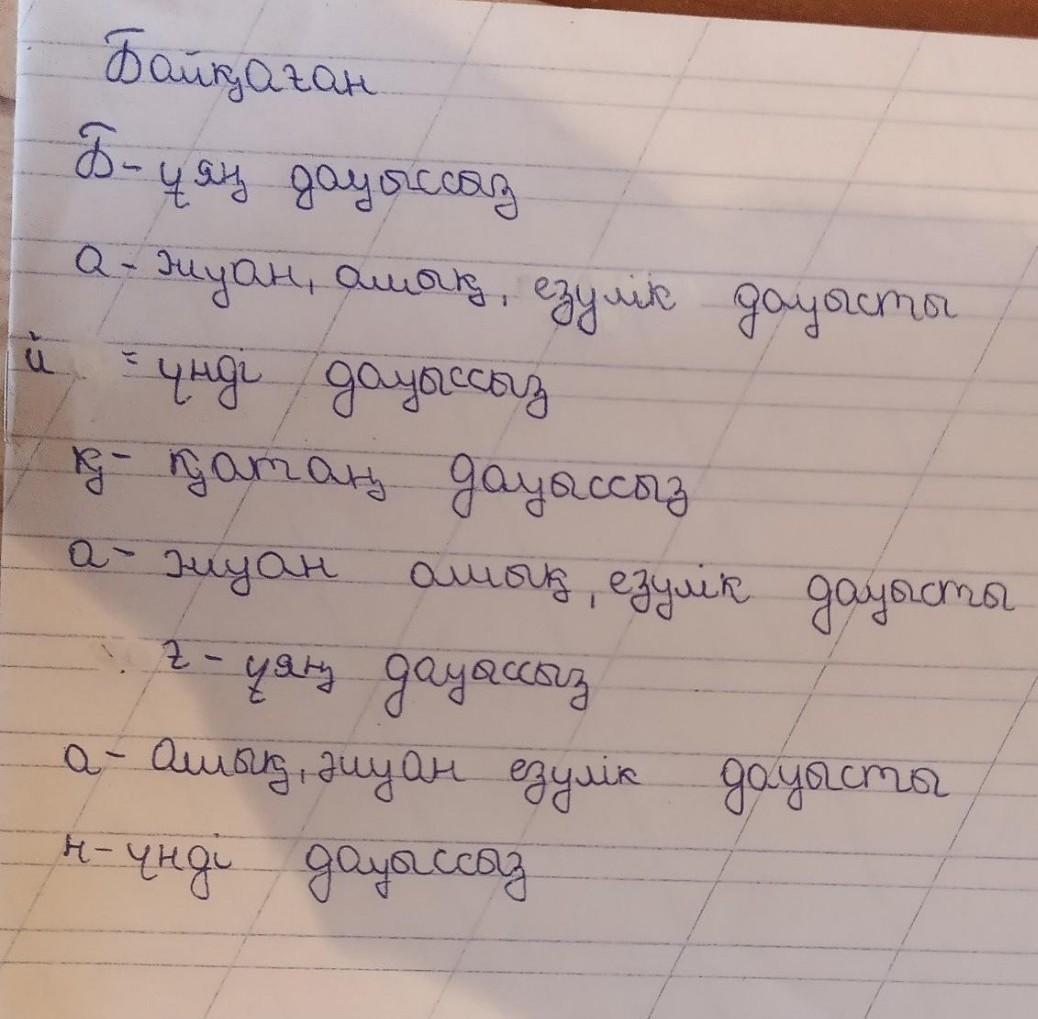 Байқаған
Б- ұяң дауыссыз
а- жуан, ашық, езулік дауысты
й = үнді дауыссыз
қ- қатаң дауыссыз
а- жуан ашық, езулік дауысты
ғ- ұяң дауыссыз
а- ашық, жуан езулік дауысты
н- үнді дауыссыз